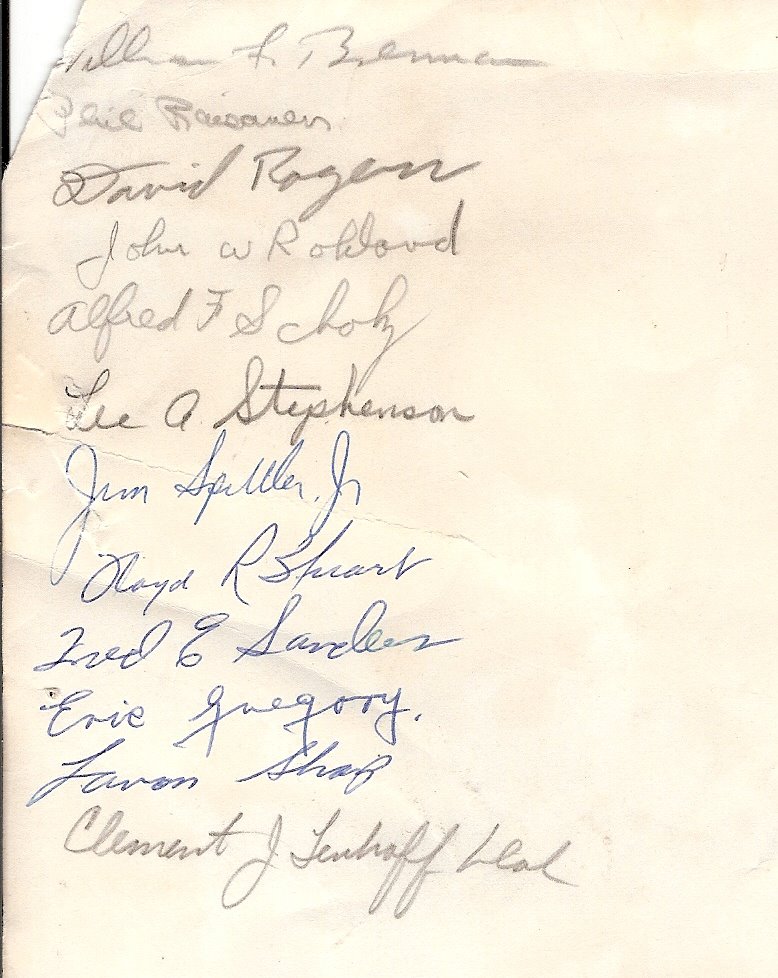 William F. Brennan
Phil Raisanen
David Rogers
John W Rokland
Alfred F Scholz
Lee A. Stephenson
Jim Spittler, Jr
Floyd R Stuart
Fred E Sanders
Eric Gregory.
Lavon Shap
Clement J Tenhoff